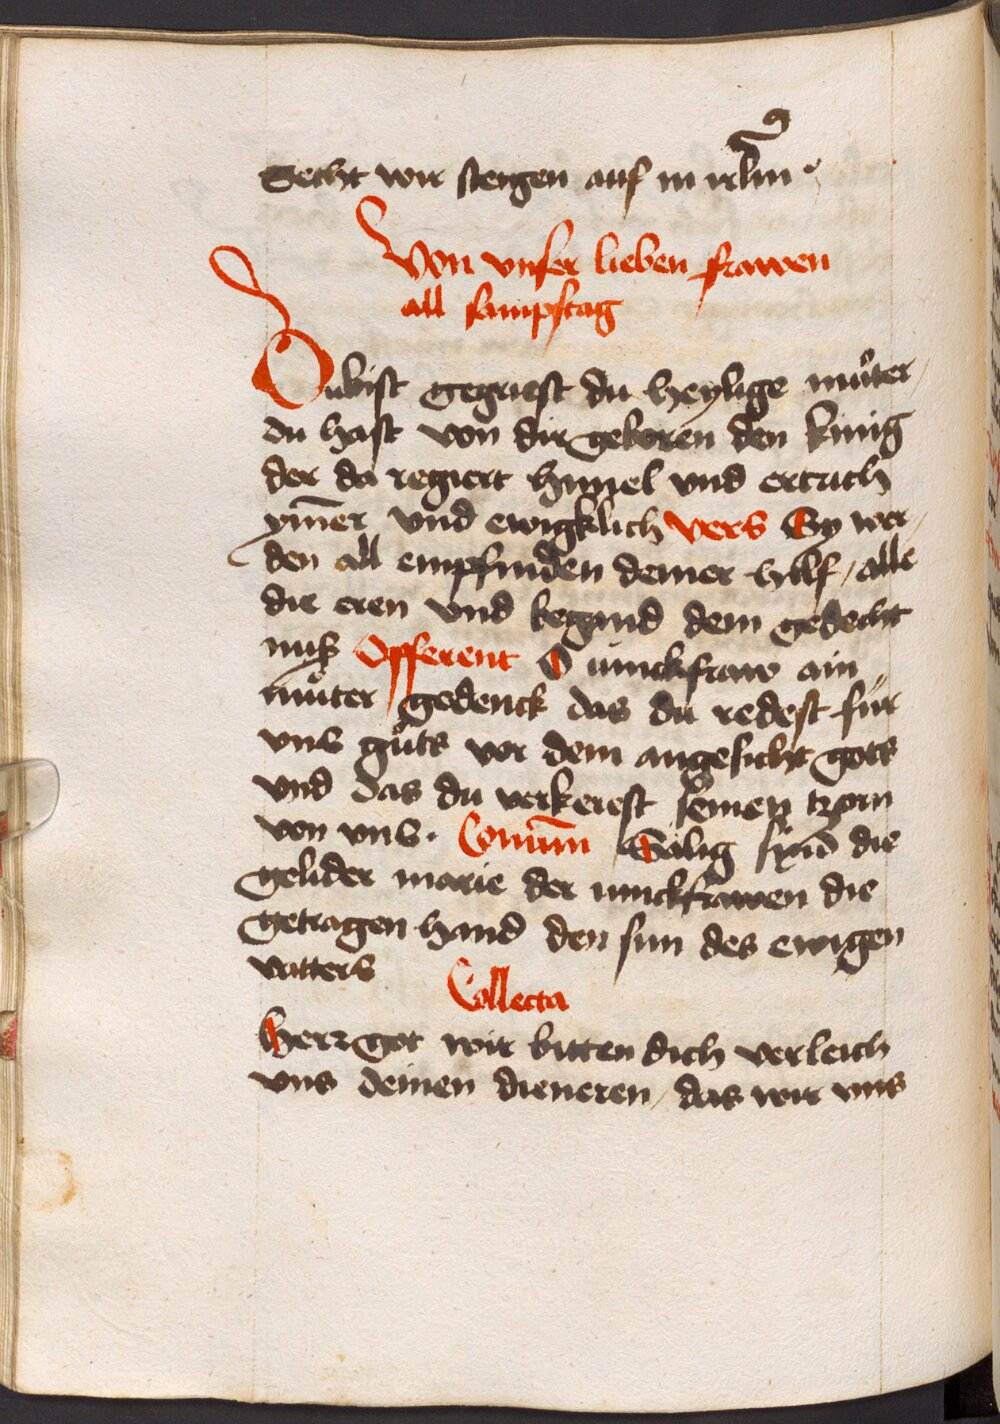 Secht wir steigen auf in irlm̅
Von vnser lieben frawen
all sampstag
Du bist gegriest du heylige muͦter
du hast von dir geboren den kinig
der da regiert himel vnd ertrich
ym̅er vnd ewigklich vers Sy wer
den all empfinden deiner hilf / alle
die eren vnd begand dein gedecht
nuß Offerent O iunckfraw ain
muͦter gedenck das du redest für
vns guͦts vor dem angesicht gots
vnd das du verkerest seinen tzorn
von vns. Com̅um̅ Sälig synd die
gelider marie der iunckfrawen die
getragen hand den sun des ewigen
vatters
Collecta
Herr got wir bitten dich verleich
vns deinen dieneren / das wir vns